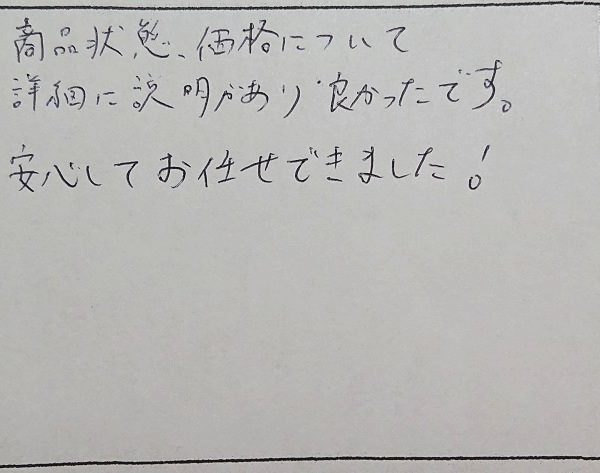 商品状態、価格について
詳細に説明があり良かったです。
安心してお任せできました!